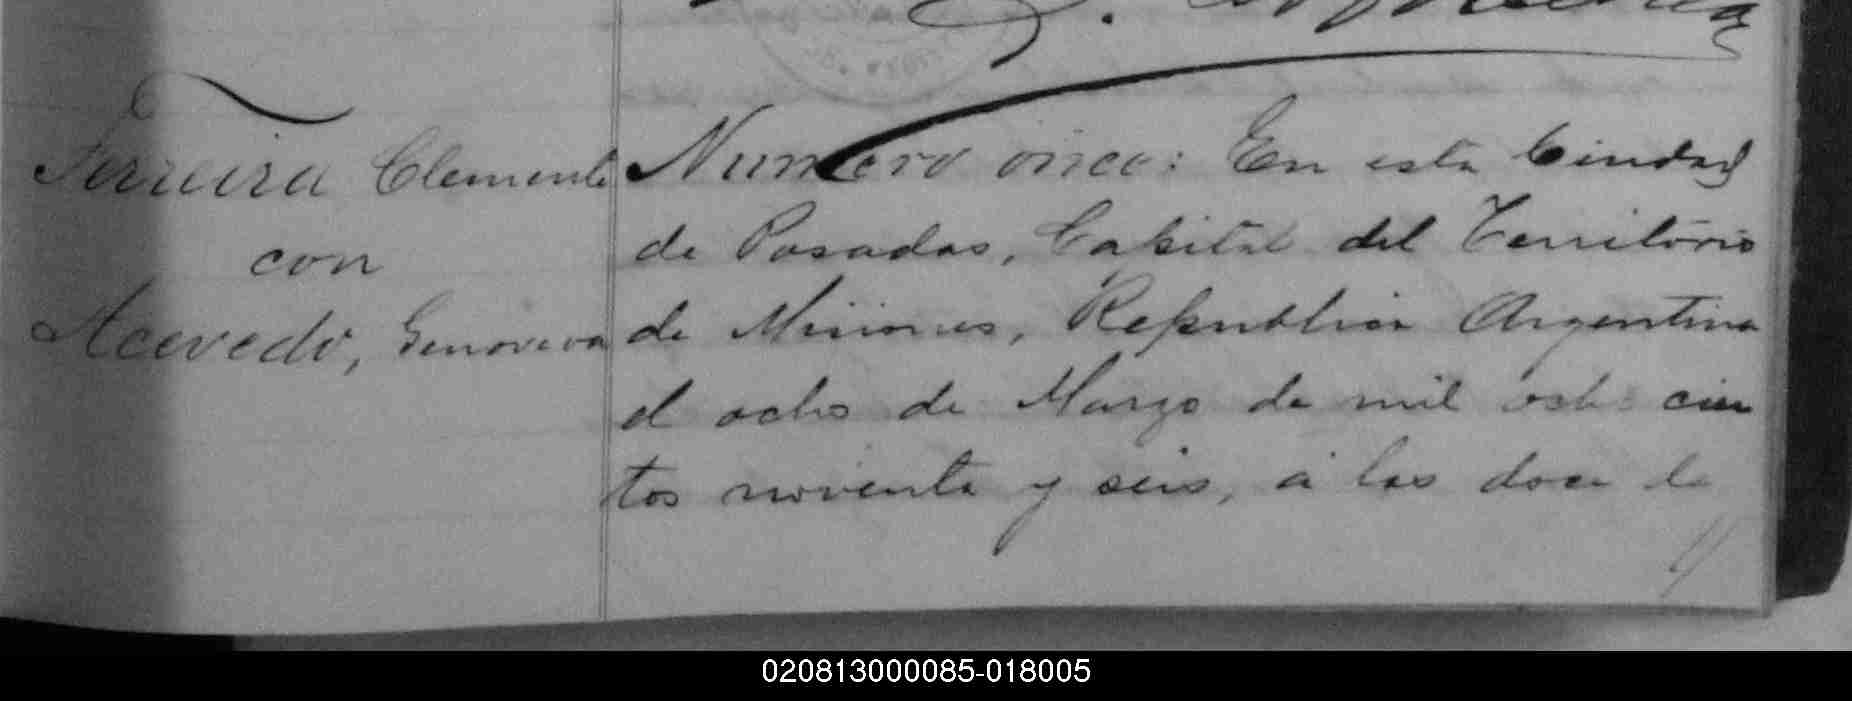 Ferreira Clemente
con
Acevedo, Genoveva
Numero once: En esta Ciudad
de Posadas, Capital del Territorio
de Misiones, Republica Argentina
el ocho de Marzo de mil ocho cien
tos noventa y seis, á las doce
020813000085-018005